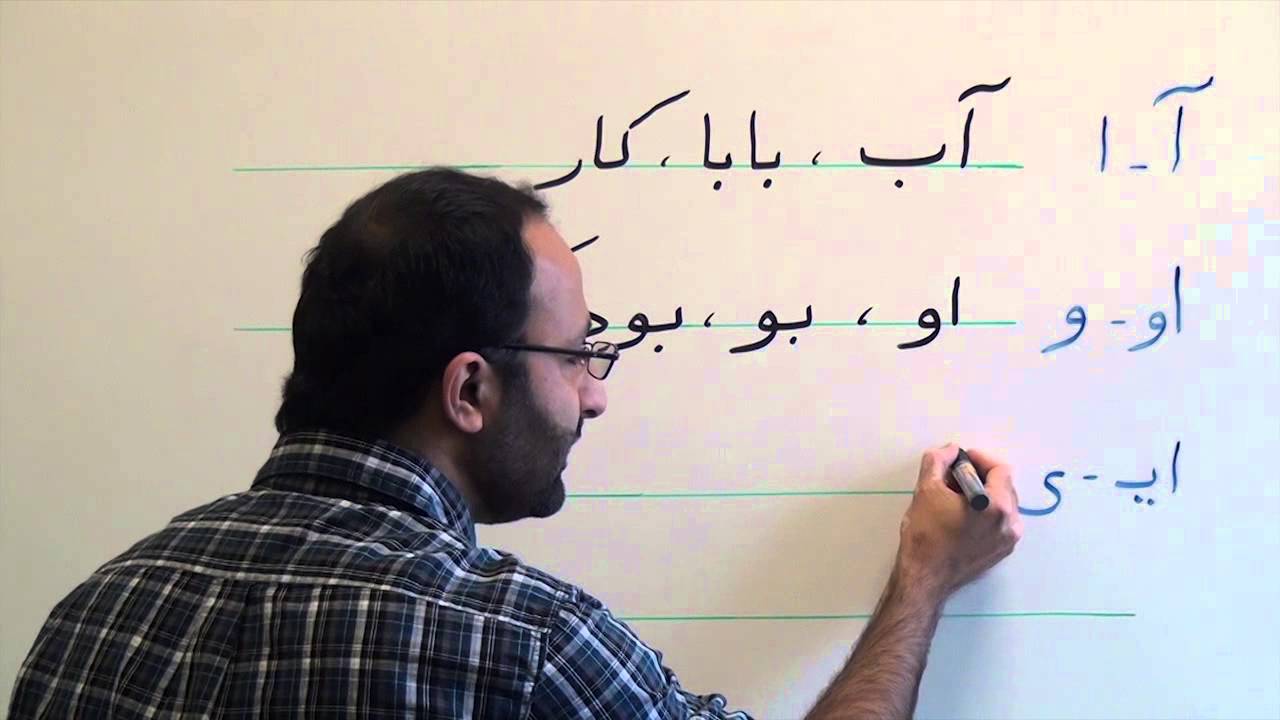 آ - ا آب ، بابا ، کار
او - و او ، بو ، بود
ایـ - ی